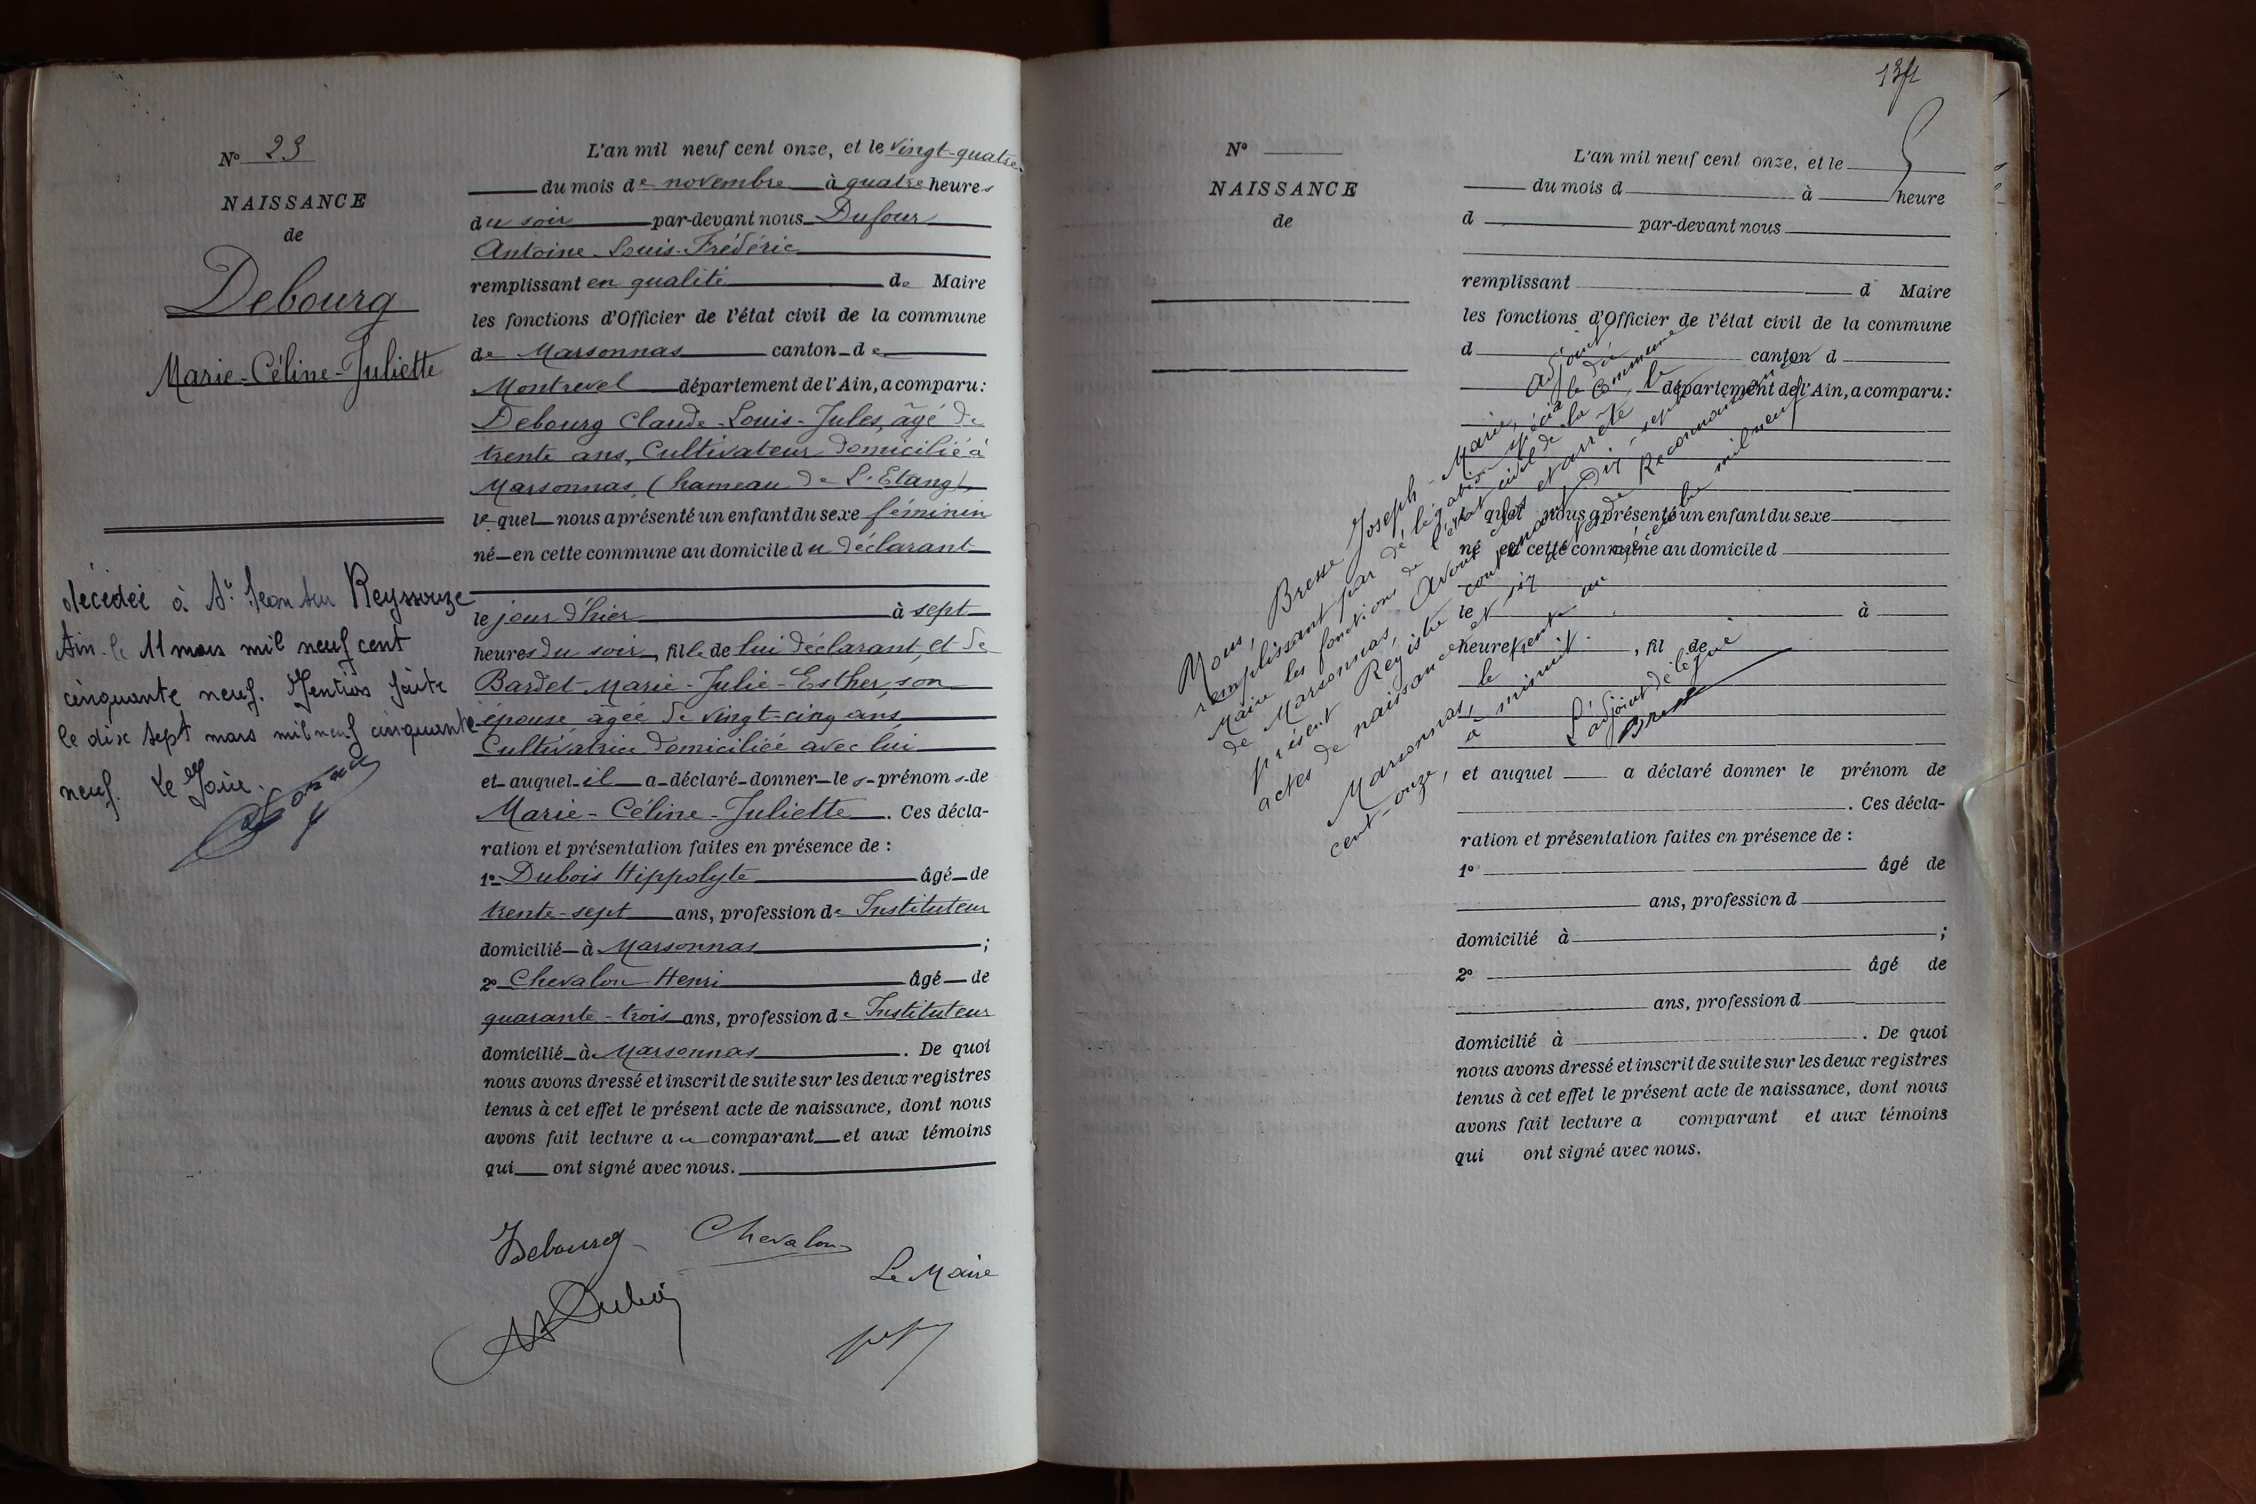 N° 23
NAISSANCE
de
Debourg
Marie-Céline-Juliette
décédée à St Jean sur Reyssouze
Ain le 11 mars mil neuf cent
cinquante neuf. Mention faite
le dix sept mars mil neuf cinquante
neuf. Le Maire.
L'an mil neuf cent onze, et le vingt-quatre
du mois de novembre à quatre heures
du soir par-devant nous Dufour
Antoine-Louis-Frédéric
remplissant en qualité de Maire
les fonctions d'Officier de l'état civil de la commune
de Marsonnas canton de
Montrevel département de l'Ain, a comparu:
Debourg Claude-Louis-Jules, âgé de
trente ans, Cultivateur domicilié à
Marsonnas, (hameau de L'Etang),
lequel nous a présenté un enfant du sexe féminin
né en cette commune au domicile du déclarant
le jour d'hier à sept
heures du soir, fille de lui déclarant, et de
Bardet Marie-Julie-Esther, son
épouse âgée de vingt-cinq ans,
Cultivatrice domiciliée avec lui
et auquel il a déclaré donner les prénoms de
Marie-Céline-Juliette. Ces décla-
ration et présentation faites en présence de :
1° Dubois Hippolyte âgé de
trente-sept ans, profession de Instituteur
domicilié à Marsonnas ;
2° Chevalon Henri âgé de
quarante-trois ans, profession de Instituteur
domicilié à Marsonnas. De quoi
nous avons dressé et inscrit de suite sur les deux registres
tenus à cet effet le présent acte de naissance, dont nous
avons fait lecture au comparant et aux témoins
qui ont signé avec nous.
Debourg Chevalon
Le Maire
H Dubois
N°
NAISSANCE
de
L'an mil neuf cent onze, et le
du mois d à heure
d par-devant nous
remplissant d Maire
les fonctions d'Officier de l'état civil de la commune
d canton d
département de l'Ain, a comparu:
quel nous a présenté un enfant du sexe
né en cette commune au domicile d
le à
heure , fil de
et auquel a déclaré donner le prénom de
. Ces décla-
ration et présentation faites en présence de :
1° âgé de
ans, profession d
domicilié à ;
2° âgé de
ans, profession d
domicilié à . De quoi
nous avons dressé et inscrit de suite sur les deux registres
tenus à cet effet le présent acte de naissance, dont nous
avons fait lecture a comparant et aux témoins
qui ont signé avec nous.
Nous, Bresse Joseph-Marie, adjoint
remplissant par délégation spéciale du
Maire les fonctions de l'état civil de la Commune
de Marsonnas, avons clos et arrêté le
présent Registre contenant dix-sept
actes de naissance et six actes de Reconnaissance
Marsonnas, le trente un décembre mil neuf
cent-onze, à minuit.
L'adjoint délégué
Bresse